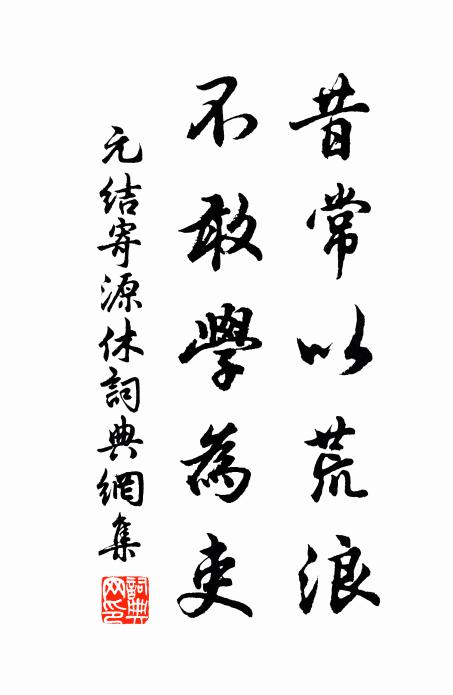 昔常以荒浪
不敢學為吏
元结寄源休詞典網集
詞典
网印